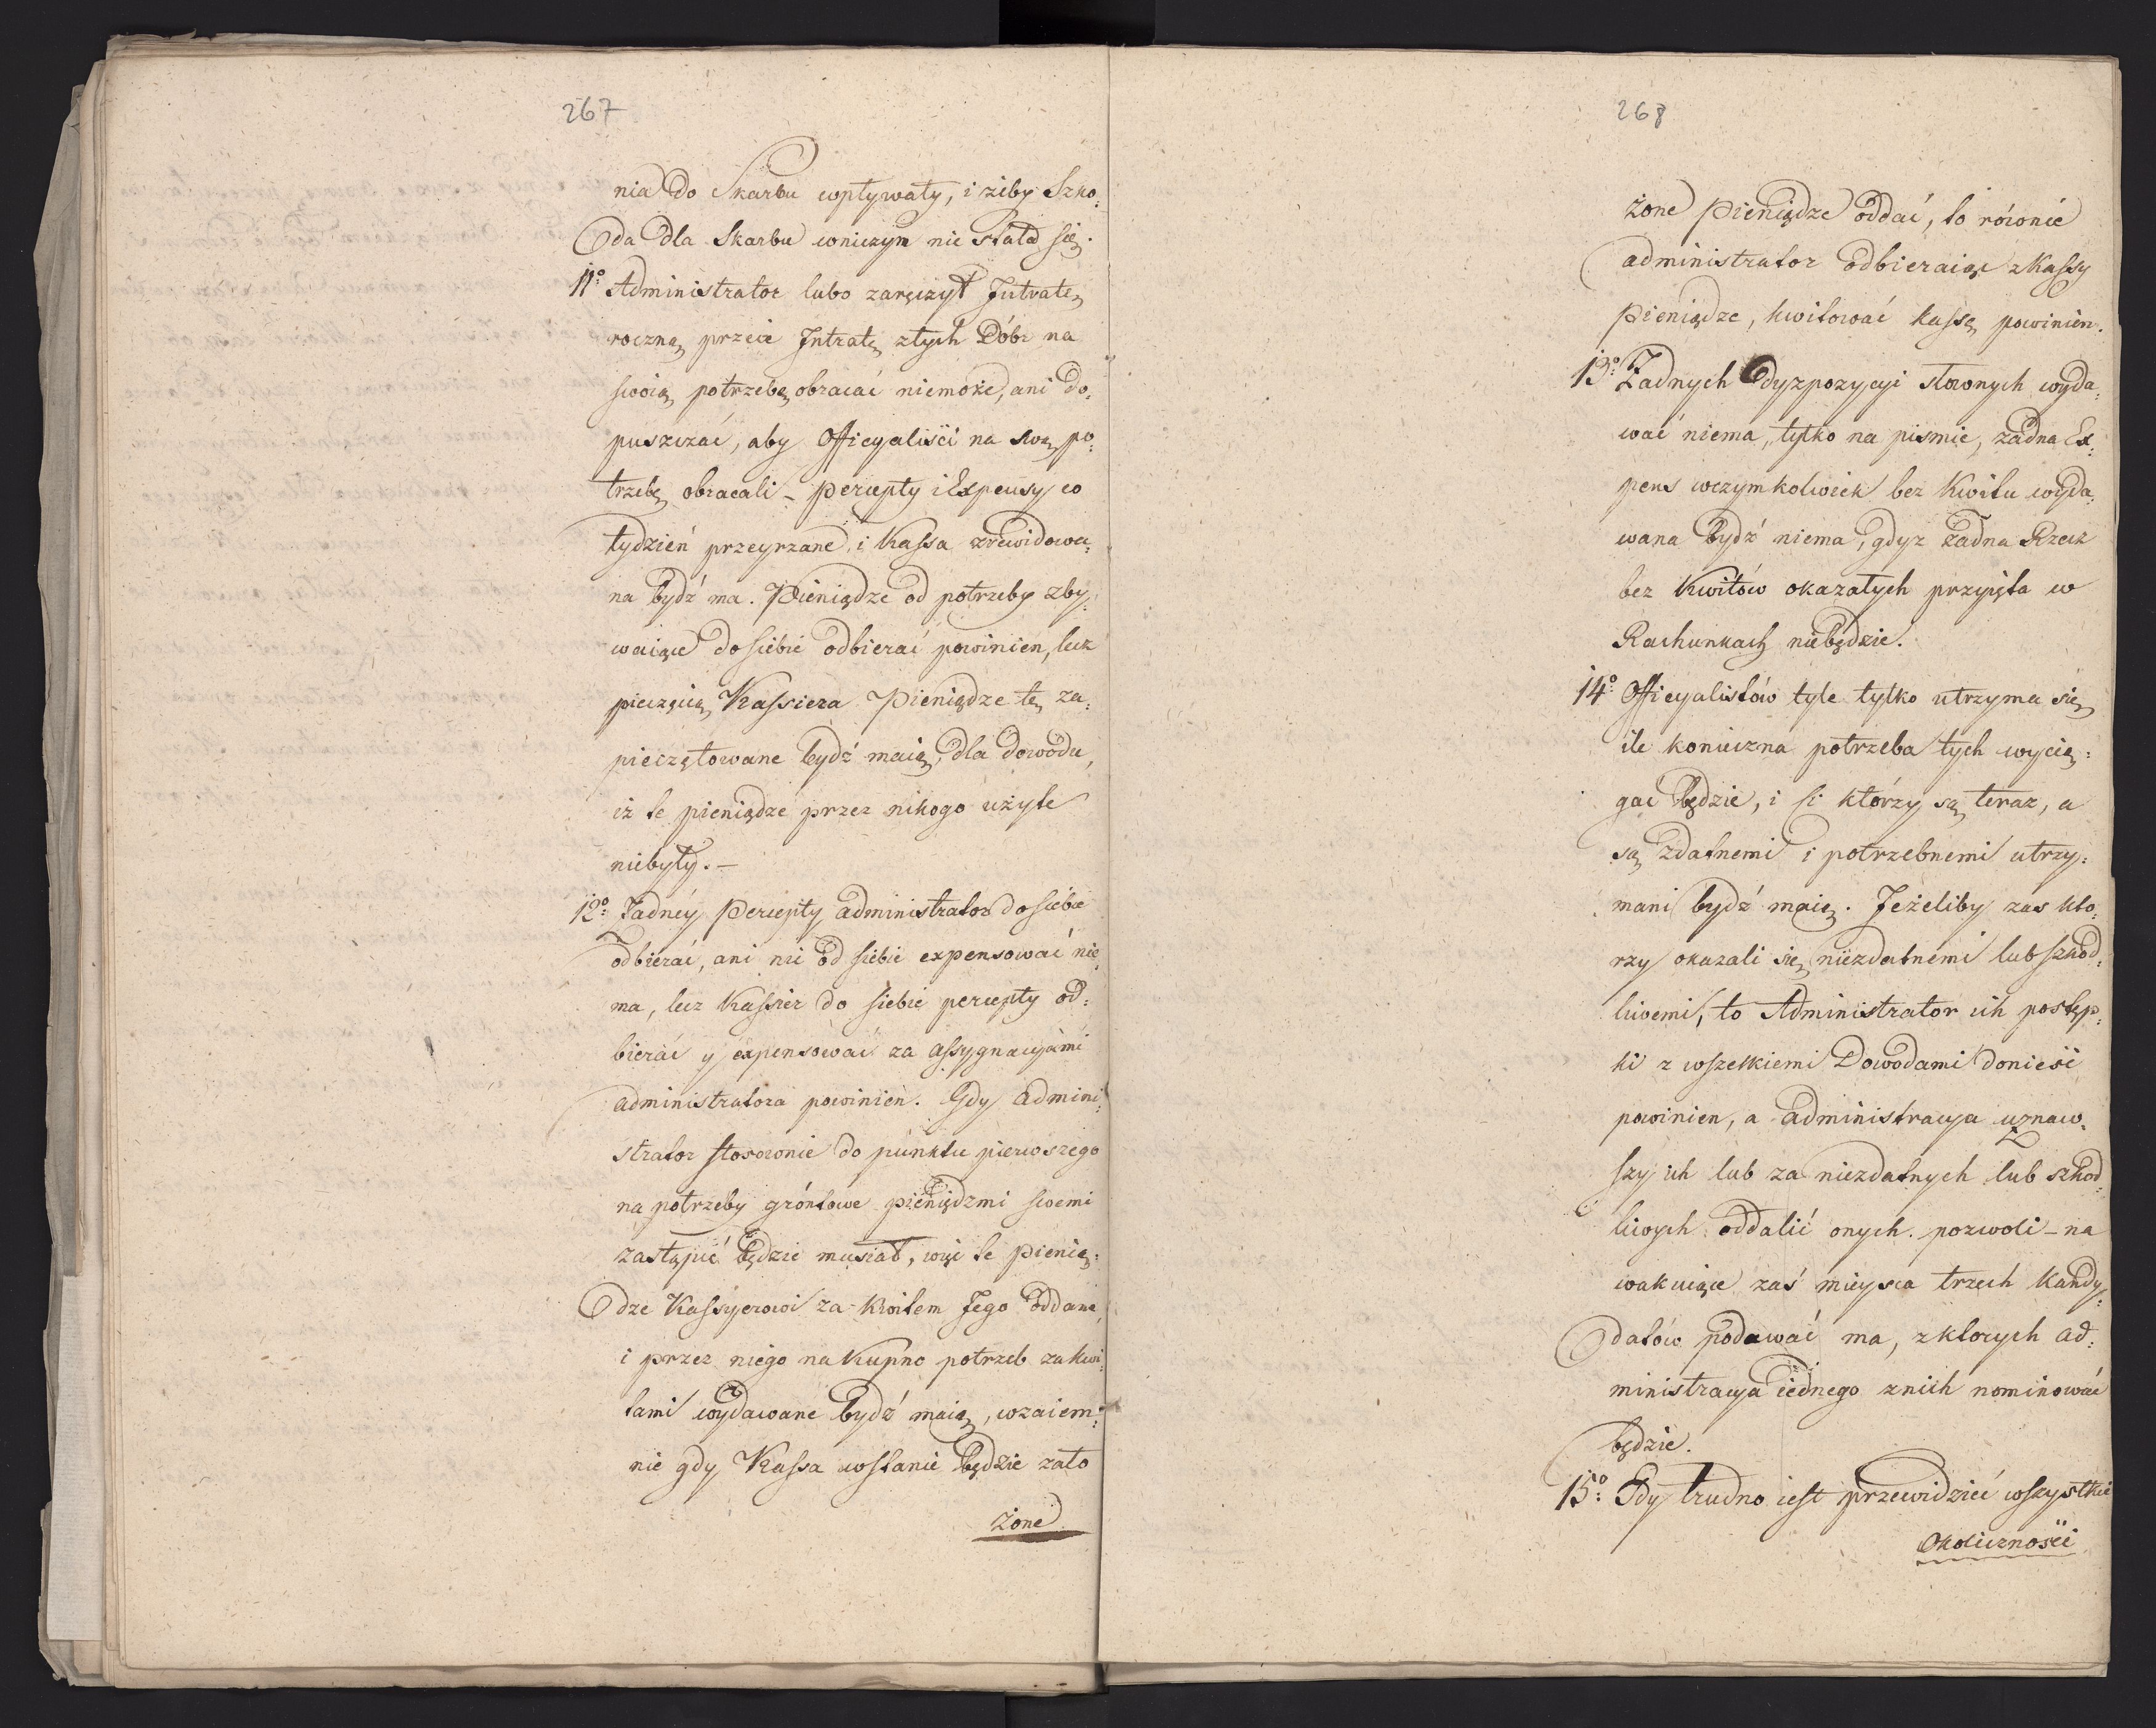 267
nia do Skarbu wpływały, i żiby Szko:
da dla Skarbu wniczym nie stała się.
11o: Administrator lubo zaręczył Jntratę
roczną przecie Jntratę ztych Dóbr na
swoią potrzebę obracać niemoże, ani do:
puszczać, aby Officyaliści na swą po:
trzebę obracali – Percepty i Expensy co
tydzień przeyrzane, i Kassa zrewidowa:
na bydź ma. Pieniądze od potrzeby zby:
waiące do siebie odbierać powinien, lecz
pieczęcią Kassiera Pieniądze te za:
pieczętowane bydź maią, dla dowodu,
iż te pieniądze przez nikogo użyte
niebyły. –
12o: Żadney Percepty administrator do siebie
odbierać, ani nic od siebie expensować nie
ma, lecz Kassier do siebie percepty od:
bierać y expensować za assygnacyami
administratora powinien. Gdy admini:
strator stosownie do punktu pierwszego
na potrzeby gróntowe pieniądzmi swemi
zastąpić będzie musiał, więc te pienią:
dze Kassyerowi za Kwitem Jego oddane,
i przez niego na Kupno potrzeb za kwi:
tami wydawane bydź maią, wzaiem:
nie gdy Kassa wstanie będzie zało
żone
268
żone pieniądze oddać, to rówonie
administrator odbieraiąc z Kassy
pieniądze, kwitować kassę powinien.
13o: Żadnych dyzpozycyi słownych wyda:
wać niema, tylko na pismie, żadna Ex:
pens wczymkolwiek bez Kwitu wyda:
wana bydź niema, gdyz żadna Rzecz
bez Kwitów okazałych przyięta w
Rachunkach niebędzie.
14o: Officyalistów tyle tylko utrzyma się
ile konieczna potrzeba tych wycią:
gać będzie, i ci którzy są teraz, a
są zdatnemi i potrzebnemi utrzy:
mani bydź maią. Jeżeliby zas kto:
rzy okazali się niezdatnemi lub szkod:
liwemi, to Administrator ich postęp:
ki z wszelkiemi Dowodami donieść
powinien, a administracya uznaw:
szy ich lub za niezdatnych lub szkod:
liwych oddalić onych. pozwoli – na
wakuiące zaś mieysca trzech Kandy:
datów podawać ma, z ktorych ad:
ministracya iednego znich nominować
będzie.
15o: Gdy trudno iest przewidzieć wszystkie
okoliczności